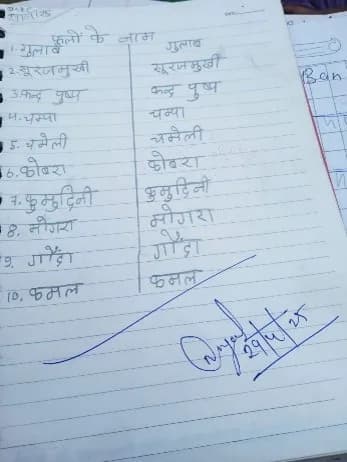 फूलों के नाम
1. गुलाब गुलाब
2. सूरजमुखी सूरजमुखी
3. कन्द पुष्प कन्द पुष्प
4. चम्पा चम्पा
5. चमेली चमेली
6. कोबरा कोबरा
7. कुमुदिनी कुमुदिनी
8. मोगरा मोगरा
9. गेंदा गेंदा
10. कमल कमल
29/4/25
Ban